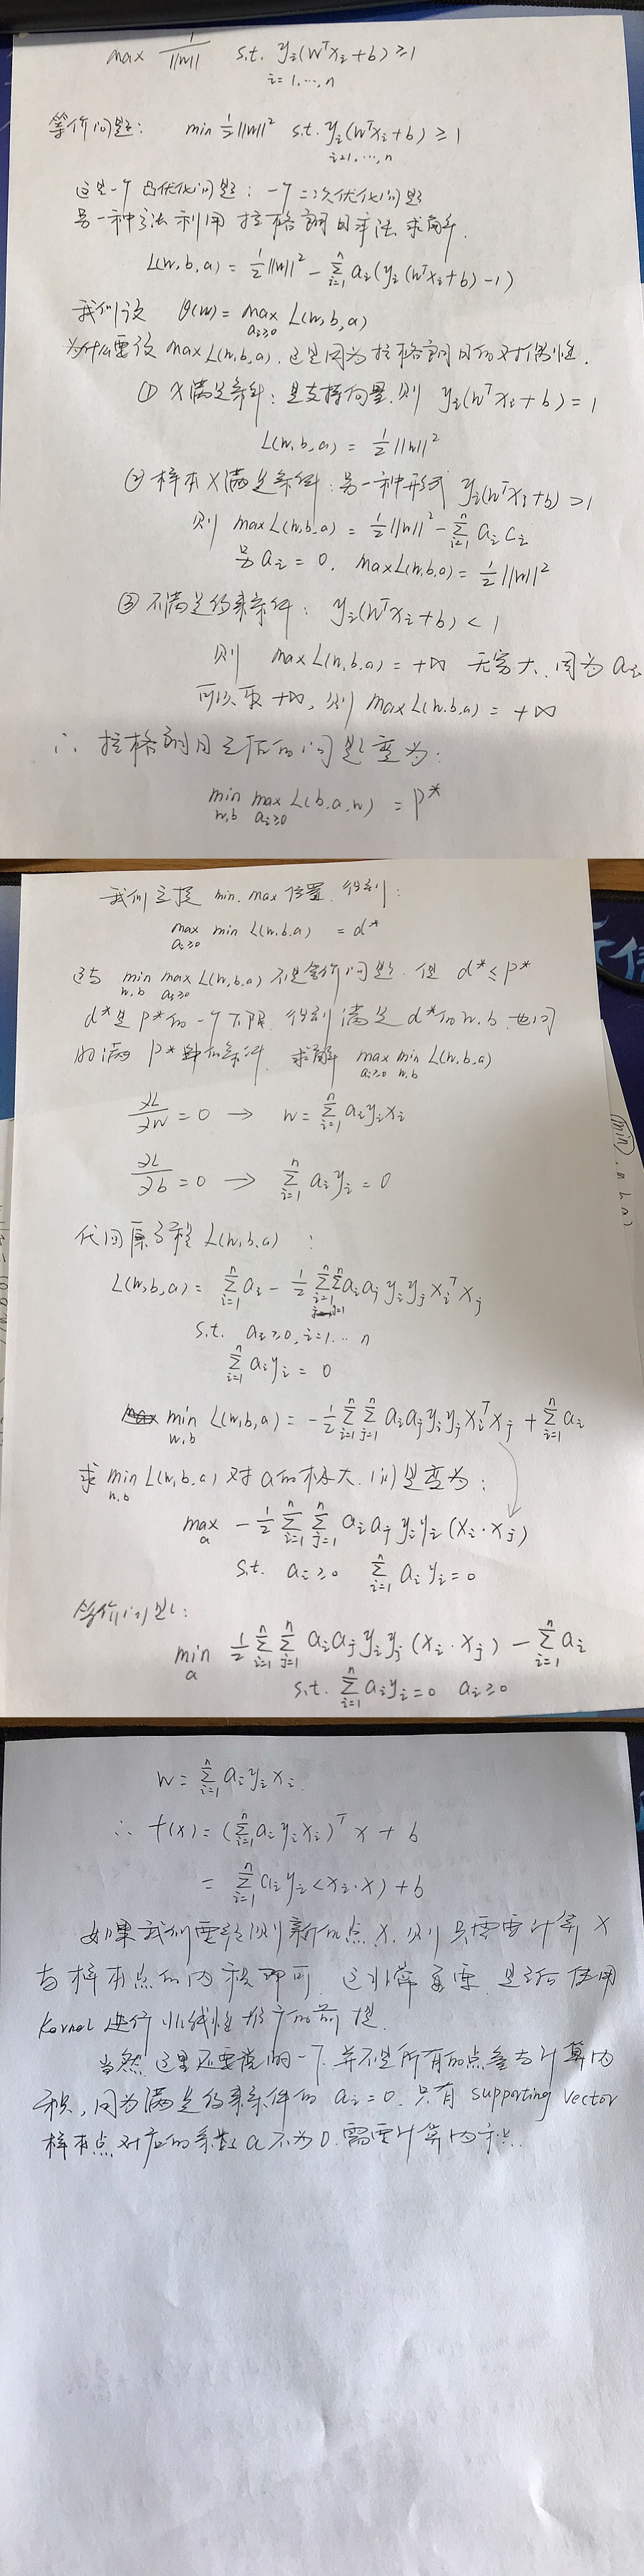 max 1/||w|| s.t. yᵢ(wᵀxᵢ+b) ≥ 1
i=1,…,n
等价问题: min ½||w||² s.t. yᵢ(wᵀxᵢ+b) ≥ 1
i=1,…,n
这是一个凸优化问题: 一个二次优化问题
另一种方法利用拉格朗日乘法求解.
L(w,b,a) = ½||w||² - Σⁿᵢ₌₁ aᵢ(yᵢ(wᵀxᵢ+b)-1)
我们设 θ(w) = max L(w,b,a)
aᵢ≥0
为什么要设 max L(w,b,a). 这是因为拉格朗日的对偶性.
① X满足条件: 是支持向量. 则 yᵢ(wᵀxᵢ+b) = 1
L(w,b,a) = ½||w||²
② 样本X满足条件: 另一种形式 yᵢ(wᵀxᵢ+b) > 1
则 max L(w,b,a) = ½||w||² - Σⁿᵢ₌₁ aᵢcᵢ
另 aᵢ = 0. max L(w,b,a) = ½||w||²
③ 不满足约束条件: yᵢ(wᵀxᵢ+b) < 1
则 max L(w,b,a) = +∞ 无穷大. 因为 aᵢ
可以取 +∞, 则 max L(w,b,a) = +∞
∴ 拉格朗日之后的问题变为:
min max L(b,a,w) = p*
w,b aᵢ≥0
我们交换 min, max 位置. 得到:
max min L(w,b,a) = d*
aᵢ≥0
这与 min max L(w,b,a) 不是等价问题. 但 d* ≤ p*
w,b aᵢ≥0
d*是p*的一个下限. 得到满足d*的w,b. 也同
的满 p* 条件. 求解 max min L(w,b,a)
aᵢ≥0 w,b
∂L/∂w = 0 → w = Σⁿᵢ₌₁ aᵢyᵢxᵢ
∂L/∂b = 0 → Σⁿᵢ₌₁ aᵢyᵢ = 0
代回原方程 L(w,b,a) :
L(w,b,a) = Σⁿᵢ₌₁ aᵢ - ½ Σⁿᵢ₌₁ Σⁿⱼ₌₁ aᵢaⱼyᵢyⱼxᵢᵀxⱼ
s.t. aᵢ≥0, i=1…n
Σⁿᵢ₌₁ aᵢyᵢ = 0
min L(w,b,a) = -½ Σⁿᵢ₌₁ Σⁿⱼ₌₁ aᵢaⱼyᵢyⱼxᵢᵀxⱼ + Σⁿᵢ₌₁ aᵢ
w,b
求 min L(w,b,a) 对a的极大. 问题变为:
w,b
max -½ Σⁿᵢ₌₁ Σⁿⱼ₌₁ aᵢaⱼyᵢyᵢ(xᵢ·xⱼ)
a
s.t. aᵢ≥0 Σⁿᵢ₌₁ aᵢyᵢ=0
等价问题:
min ½ Σⁿᵢ₌₁ Σⁿⱼ₌₁ aᵢaⱼyᵢyⱼ(xᵢ·xⱼ) - Σⁿᵢ₌₁ aᵢ
a
s.t. Σⁿᵢ₌₁ aᵢyᵢ=0 aᵢ≥0
w = Σⁿᵢ₌₁ aᵢyᵢxᵢ.
∴ f(x) = (Σⁿᵢ₌₁ aᵢyᵢxᵢ)ᵀx + b
= Σⁿᵢ₌₁ aᵢyᵢ<xᵢ·x> + b
如果我们要预测新的点X, 则只需要计算X
与样本点的内积即可. 这非常重要. 是之后使用
Kernel 进行非线性推广的前提.
当然这里还要说明一下. 并不是所有的点全去计算内
积, 因为满足约束条件的 aᵢ=0. 只有 supporting vector
样本点对应的系数 a 不为0. 需要计算内积.